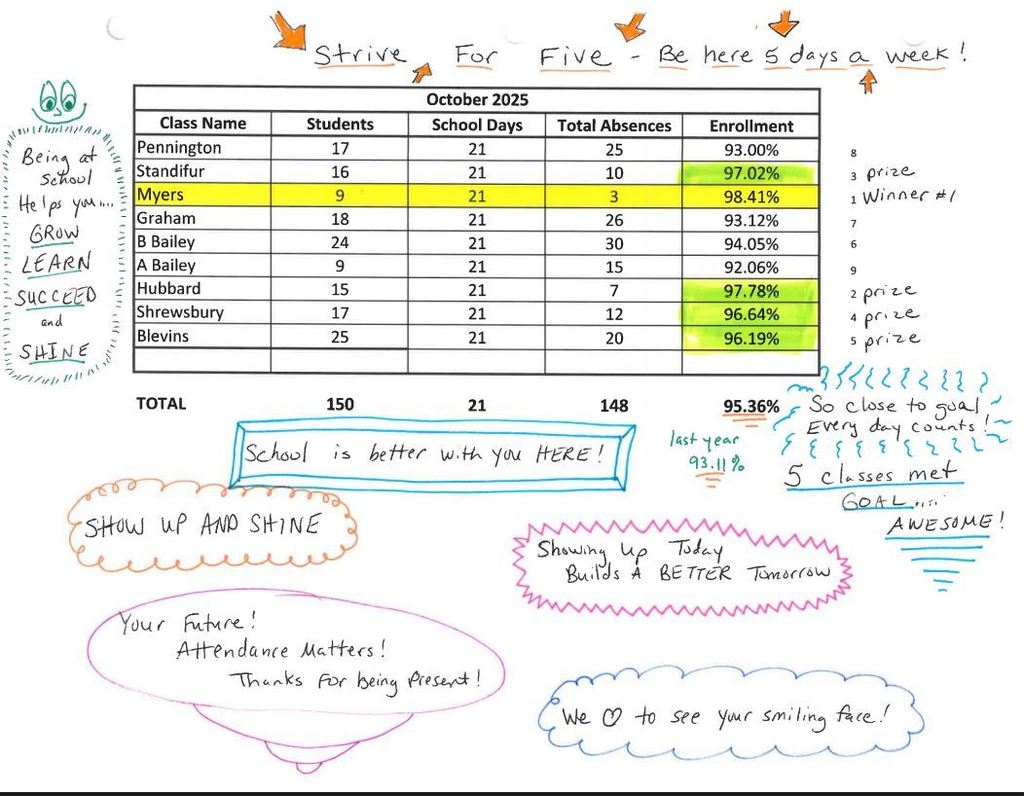 Strive For Five - Be here 5 days a week!
October 2025
Class Name Students School Days Total Absences Enrollment
Pennington 17 21 25 93.00% 8
Standifur 16 21 10 97.02% 3 prize
Myers 9 21 3 98.41% 1 Winner #1
Graham 18 21 26 93.12% 7
B Bailey 24 21 30 94.05% 6
A Bailey 9 21 15 92.06% 9
Hubbard 15 21 7 97.78% 2 prize
Shrewsbury 17 21 12 96.64% 4 prize
Blevins 25 21 20 96.19% 5 prize
TOTAL 150 21 148 95.36%
Being at
School
Helps you....
GROW
LEARN
SUCCEED
and
SHINE
So close to goal
Every day counts!
last year
93.11%
5 classes met
GOAL.....
AWESOME!
School is better with you HERE!
SHOW UP AND SHINE
Showing Up Today
Builds A BETTER Tomorrow
Your Future!
Attendance Matters!
Thanks For being Present!
We ♡ to see your smiling face!